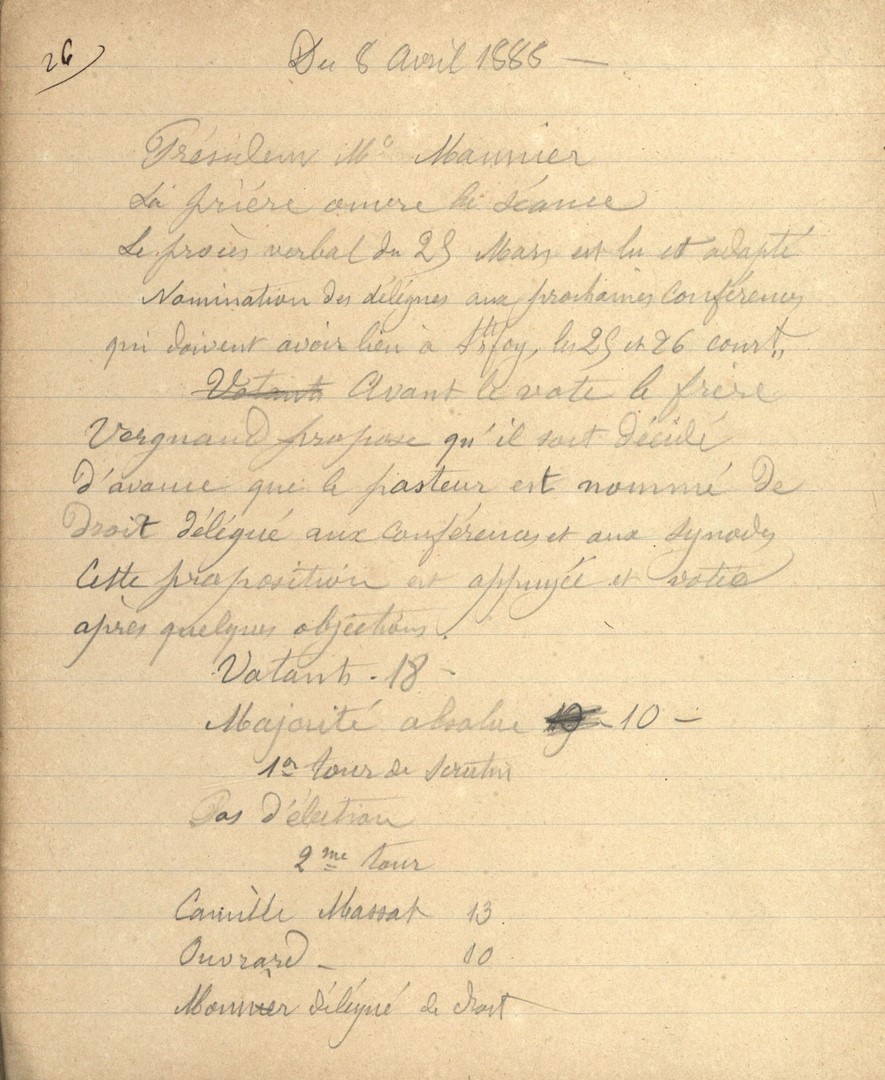 26
Du 8 Avril 1888 —
Président Mr Maunier
La prière ouvre la séance
Le procès verbal du 25 Mars est lu et adapté
Nomination des délégués aux prochaines conférences
qui doivent avoir lieu à Ste foy, les 25 et 26 court,,
Votants Avant le vote le frère
Vergnaud propose qu'il soit décidé
d'avance que le pasteur est nommé de
Droit délégué aux conférences et aux synodes
Cette proposition est appuyée et votée
après quelques objections.
Votants - 18 -
Majorité absolue 10 -
1er tour de scrutin
Pas d'élection
2me tour
Camille Massat 13
Ouvrard - 10
Mounier délégué de droit